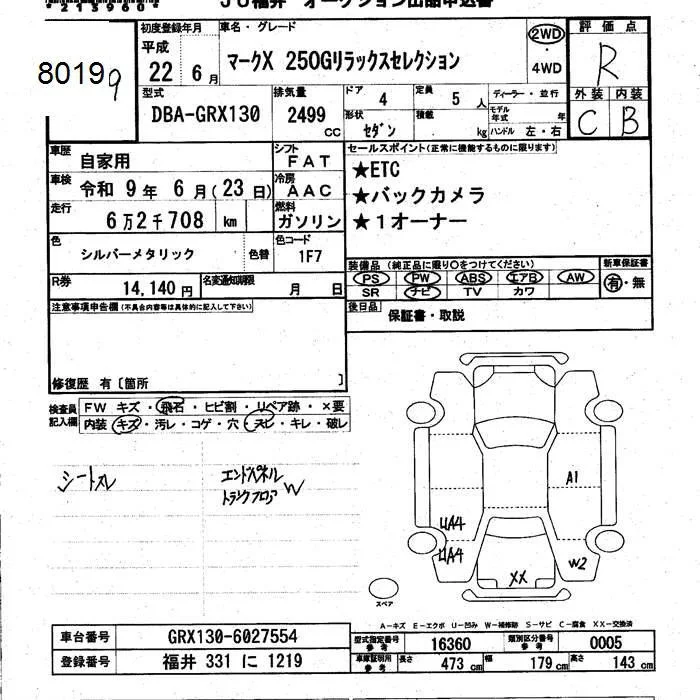 *215960*
JU福井 オークション出品申込書
80199
初度登録年月 車名・グレード
平成 22年 6月 マークX 250Gリラックスセレクション
2WD・4WD
評価点
R
型式 排気量 ドア 定員 ディーラー・並行
DBA-GRX130 2499 CC 4 5人
モデル年式 年
形状 積載
セダン kg ハンドル 左・右
外装 内装
C B
車歴 自家用 シフト FAT
車検 令和 9年 6月(23日) 冷房 AAC
走行 6万2千708 km 燃料 ガソリン
色 シルバーメタリック 色替 色コード 1F7
R券 14,140円 名変通知期限 月 日
セールスポイント(正常に機能するものに限ります)
★ETC
★バックカメラ
★1オーナー
装備品(純正品に限り○をつけてください) 新車保証書
PS PW ABS エアB AW 有・無
SR ナビ TV カワ
後日品 保証書・取説
注意事項申告欄(不具合内容等は具体的に記入して下さい)
修復歴 有〔箇所 〕
検査員記入欄
FW キズ・飛石・ヒビ割・リペア跡・×要
内装 キズ・汚レ・コゲ・穴・スレ・キレ・破レ
シートスレ
エンドパネル
トランクフロア W
A1
UA4
UA4
W2
XX
スペア
A−キズ E−エクボ U−凹み W−補修跡 S−サビ C−腐食 XX−交換済
車台番号 GRX130-6027554
登録番号 福井 331 に 1219
型式指定番号 参考 16360 類別区分番号 参考 0005
車庫証明用 参考 長さ 473 cm 幅 179 cm 高さ 143 cm